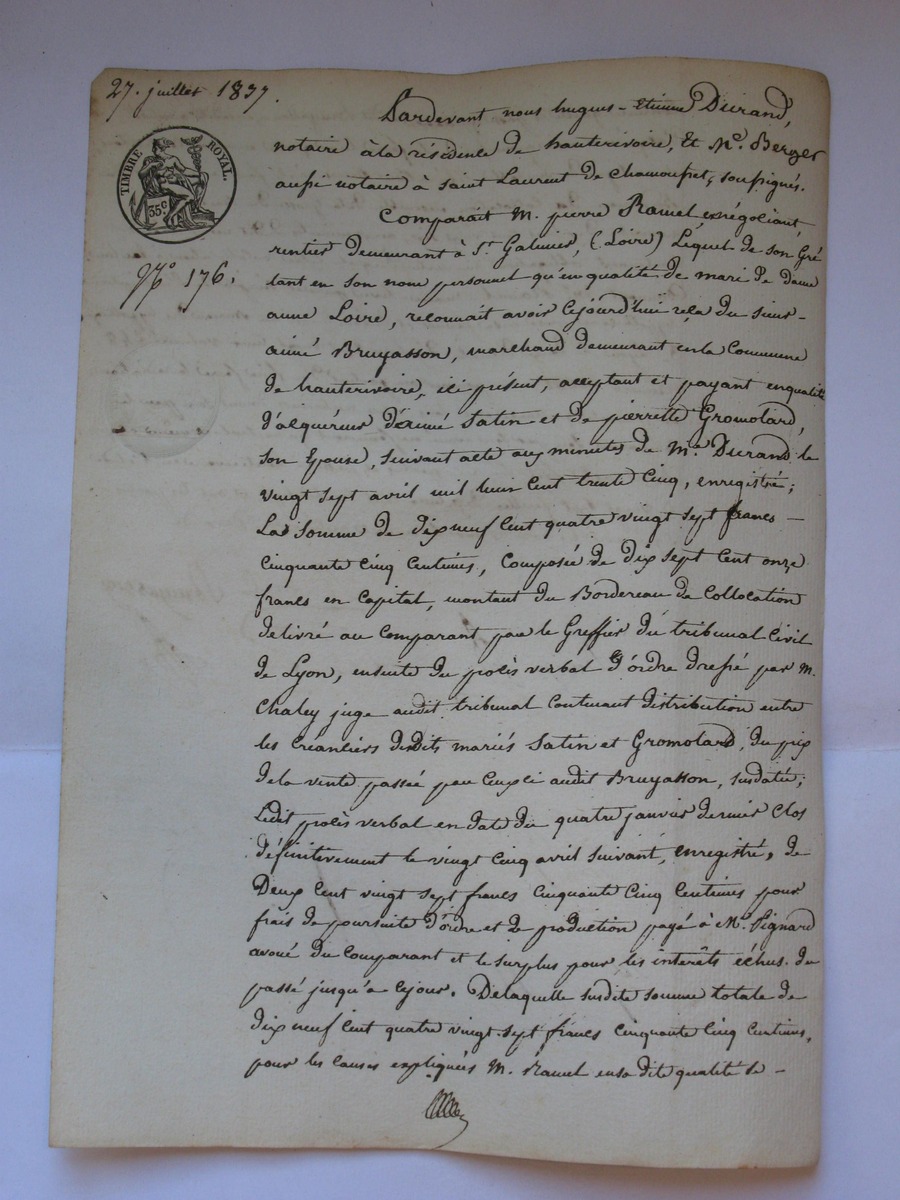 27. juillet 1837.
Pardevant nous hugues-Etienne Durand,
notaire à la résidence de hauterivoire, Et Me. Berger
aussi notaire à saint Laurent de Chamousset, soussignés.
TIMBRE ROYAL.
35 c
Comparait M. pierre Ramel, exnégociant,
rentier demeurant à St. Galmier, (Loire) Lequel de son Gré
No 176.
tant en son nom personnel qu'en qualité de mari de dame
anne Loire, reconnait avoir Cejourd'hui reçu du sieur-
aimé Bruyasson, marchand demeurant en la Commune
de hauterivoire, ici présent, acceptant et payant enqualité
d'acquéreur d'érimé Satin et de pierrette Gromolard,
son Epouse, suivant acte aux minutes de Me. Durand le
vingt sept avril mil huit Cent trente Cinq, enregistré;
La somme de dix neuf Cent quatre vingt sept francs —
Cinquante Cinq Centimes, Composée de dix sept Cent onze
francs en Capital, montant du Bordereau de Collocation
delivré au Comparant par le Greffier du tribunal Civil
de Lyon, ensuite du procès verbal d'ordre dressé par M.
Chaley juge audit tribunal Contenant distribution entre
les Créanciers desdits mariés Satin et Gromolard, du prix
dela vente passée par Ceux ci audit Bruyasson, susdatée;
Ledit procès verbal en date du quatre janvier dernier Clos
définitivement le vingt Cinq avril suivant, enregistré, de
Deux Cent vingt sept francs Cinquante Cinq Centimes pour
frais de poursuite d'ordre et de production payé à Me. Pignard
avoué du Comparant et le surplus pour les intérêts échus du
passé jusqu'a Cejour. Delaquelle susdite somme totale de
dix neuf Cent quatre vingt sept francs Cinquante Cinq Centimes,
pour les Causes expliquées M. Ramel en sa dite qualité se —